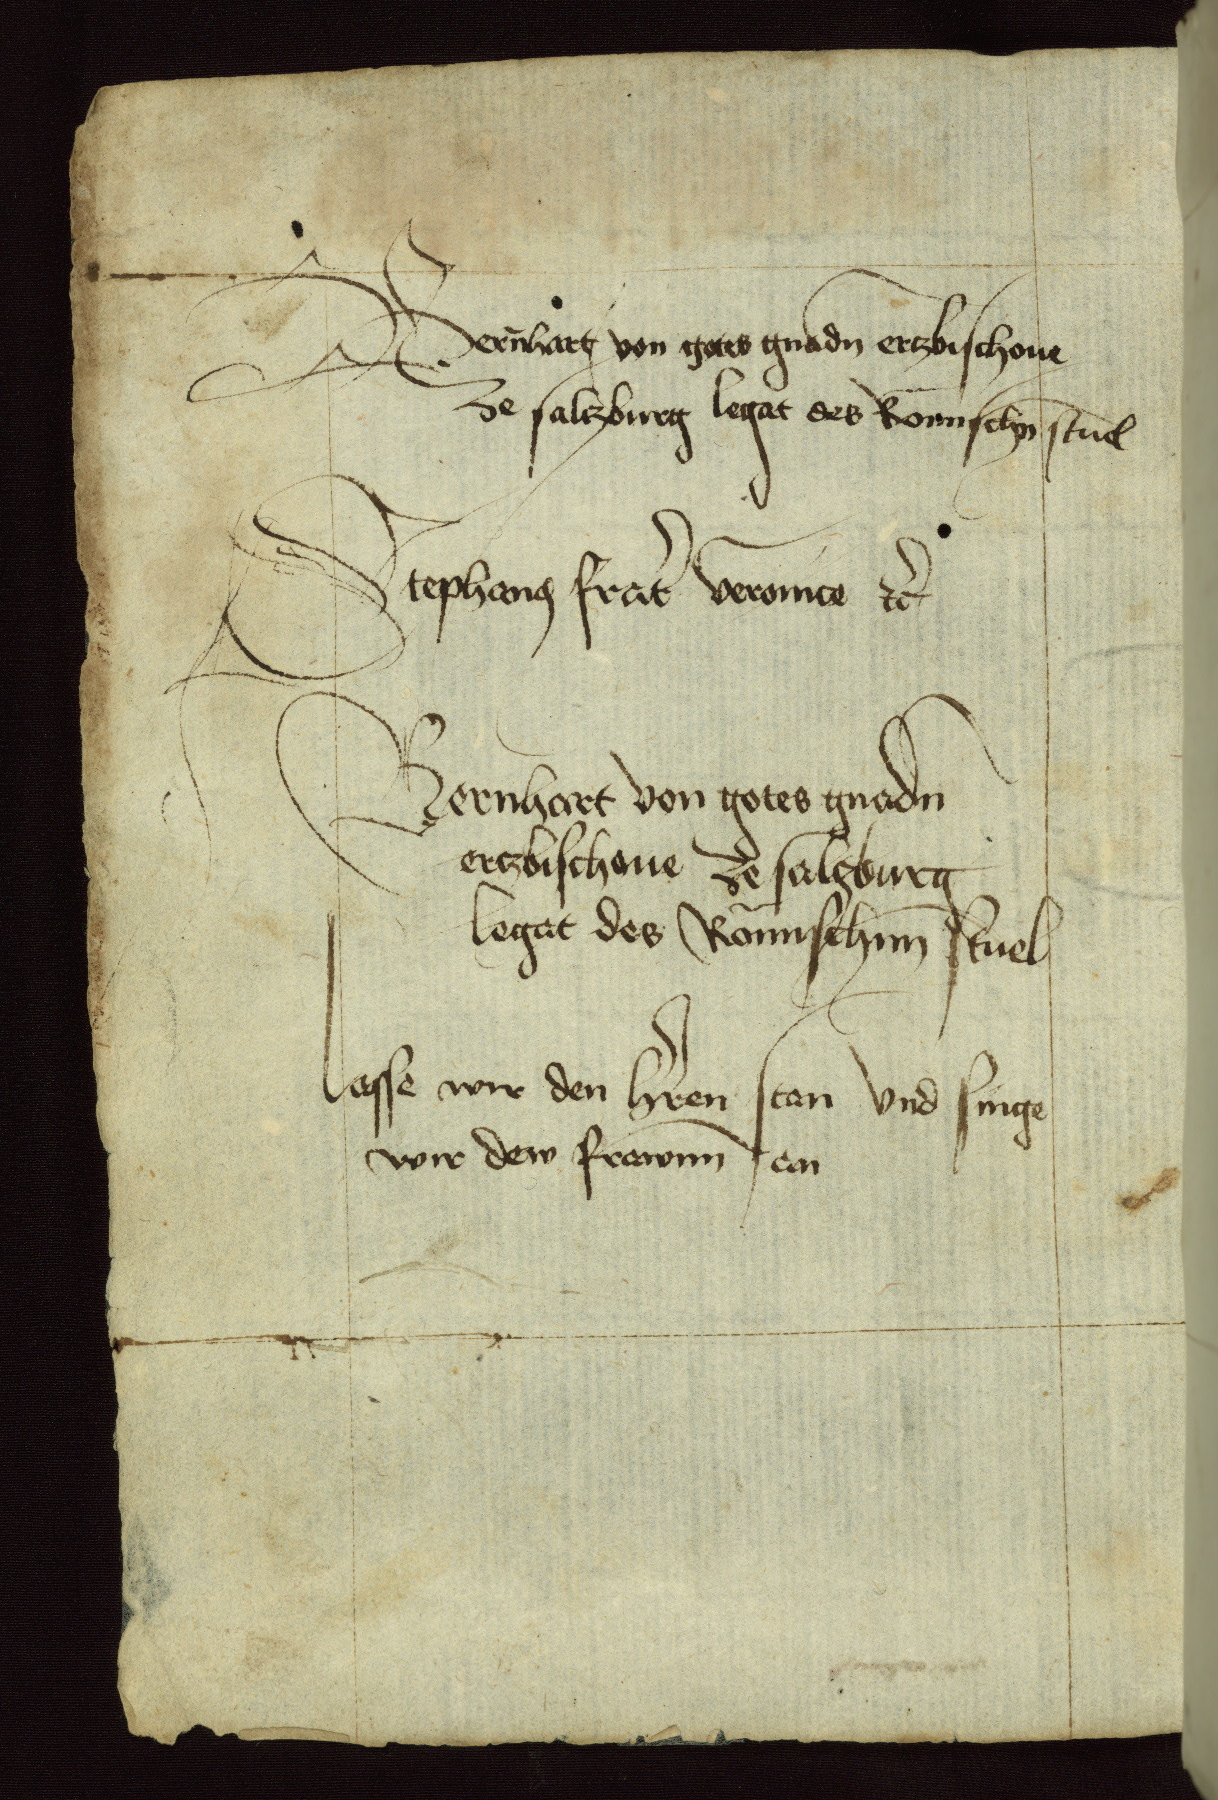 Bernhart von gotes gnadn erczbischoue
ze salczburg legat des Romischn stuel
Stephanus frater veronice etc
Bernhart von gotes gnadn
erczbischoue ze salczburg
legat des Römischnn stuel
lasse wir den hren stan vnd singe
wir dew frawnn an